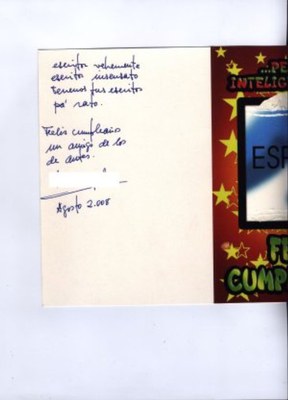 escritor vehemente
escrito insensato
tenemos tus escritos
pa' rato.
Feliz cumpleaño
un amigo de los
de antes.
Agosto 2.008
...PE
INTELIG
ESP
FE
CUMP